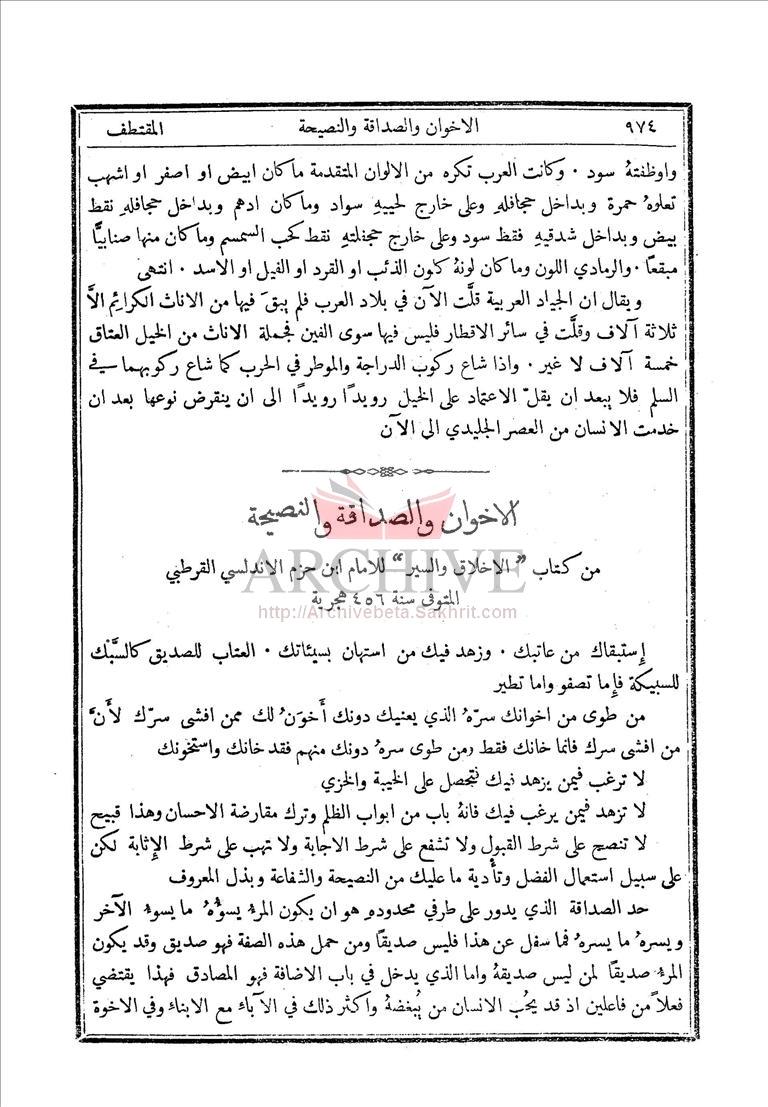 ٩٧٤ الاخوان والصداقة والنصيحة المقتطف
واوظفتهُ سود . وكانت العرب تكره من الالوان المتقدمة ماكان ابيض او اصفر او اشهب
تعلوهُ حمرة وبداخل حجافلهِ وعلى خارج لحييهِ سواد وماكان ادهم وبداخل حجافلهِ نقط
بيض وبداخل شدقيهِ فقط سود وعلى خارج حجفلتهِ نقط كحب السمسم وماكان منها صنابيًّا
مبقعًا . والرمادي اللون وماكان لونهُ كلون الذئب او القرد او الفيل او الاسد . انتهى
ويقال ان الجياد العربية قلَّت الآن في بلاد العرب فلم يبقَ فيها من الاناث الكرائم الَّا
ثلاثة آلاف وقلَّت في سائر الاقطار فليس فيها سوى الفين فجملة الاناث من الخيل العتاق
خمسة آلاف لا غير . واذا شاع ركوب الدراجة والموطر في الحرب كما شاع ركوبهما في
السلم فلا يبعد ان يقلّ الاعتماد على الخيل رويدًا رويدًا الى ان ينقرض نوعها بعد ان
خدمت الانسان من العصر الجليدي الى الآن
الاخوان والصداقة والنصيحة
من كتاب "الاخلاق والسير" للامام ابن حزم الاندلسي القرطبي
ARCHIVE
المتوفى سنة ٤٥٦ هجرية
http://Archivebeta.Sakhrit.com
إستبقاك من عاتبك . وزهد فيك من استهان بسيئاتك . العتاب للصديق كالسَّبْك
للسبيكة فإما تصفو واما تطير
من طوى من اخوانك سرّهُ الذي يعنيك دونك أَخوَنُ لك ممن افشى سرّك لأنَّ
من افشى سرك فانما خانك فقط ومن طوى سرهُ دونك منهم فقد خانك واستخونك
لا ترغب فيمن يزهد فيك فتحصل على الخيبة والخزي
لا تزهد فيمن يرغب فيك فانهُ باب من ابواب الظلم وترك مقارضة الاحسان وهذا قبيح
لا تنصح على شرط القبول ولا تشفع على شرط الاجابة ولا تهب على شرط الإِثابة لكن
على سبيل استعمال الفضل وتأدية ما عليك من النصيحة والشفاعة وبذل المعروف
حد الصداقة الذي يدور على طرفي محدودهِ هو ان يكون المرءُ يسوءُهُ ما يسوءُ الآخر
ويسرهُ ما يسرهُ فما سفل عن هذا فليس صديقًا ومن حمل هذه الصفة فهو صديق وقد يكون
المرءُ صديقًا لمن ليس صديقهُ واما الذي يدخل في باب الاضافة فهو المصادق فهذا يقتضي
فعلًا من فاعلين اذ قد يحُب الانسان من يُبغضهُ واكثر ذلك في الآباءِ مع الابناءِ وفي الاخوة